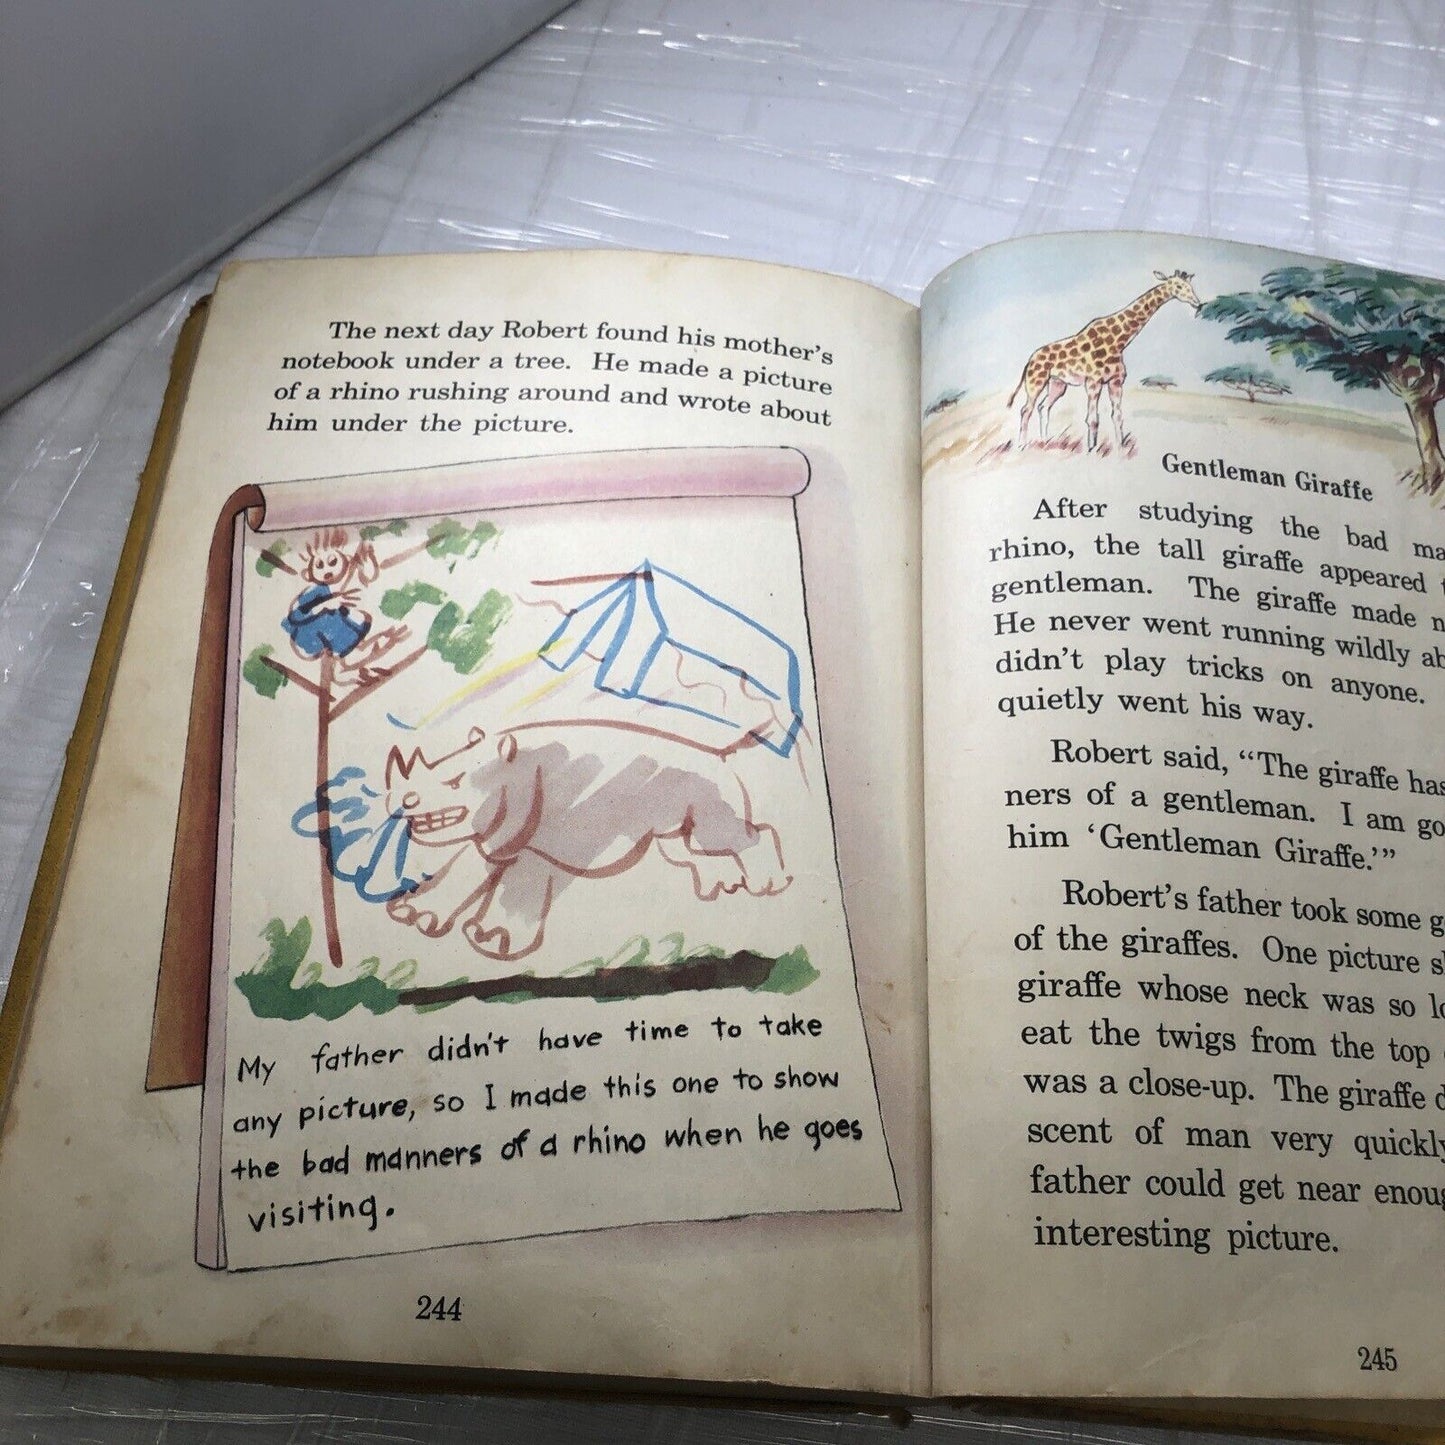 The next day Robert found his mother's
notebook under a tree. He made a picture
of a rhino rushing around and wrote about
him under the picture.
My father didn't have time to take
any picture, so I made this one to show
the bad manners of a rhino when he goes
visiting.
244
Gentleman Giraffe
After studying the bad
rhino, the tall giraffe appeared
gentleman. The giraffe made
He never went running wildly
didn't play tricks on anyone.
quietly went his way.
Robert said, “The giraffe has
ners of a gentleman. I am
him ‘Gentleman Giraffe.’”
Robert's father took some
of the giraffes. One picture
giraffe whose neck was so
eat the twigs from the top
was a close-up. The giraffe
scent of man very quickly
father could get near
interesting picture.
245